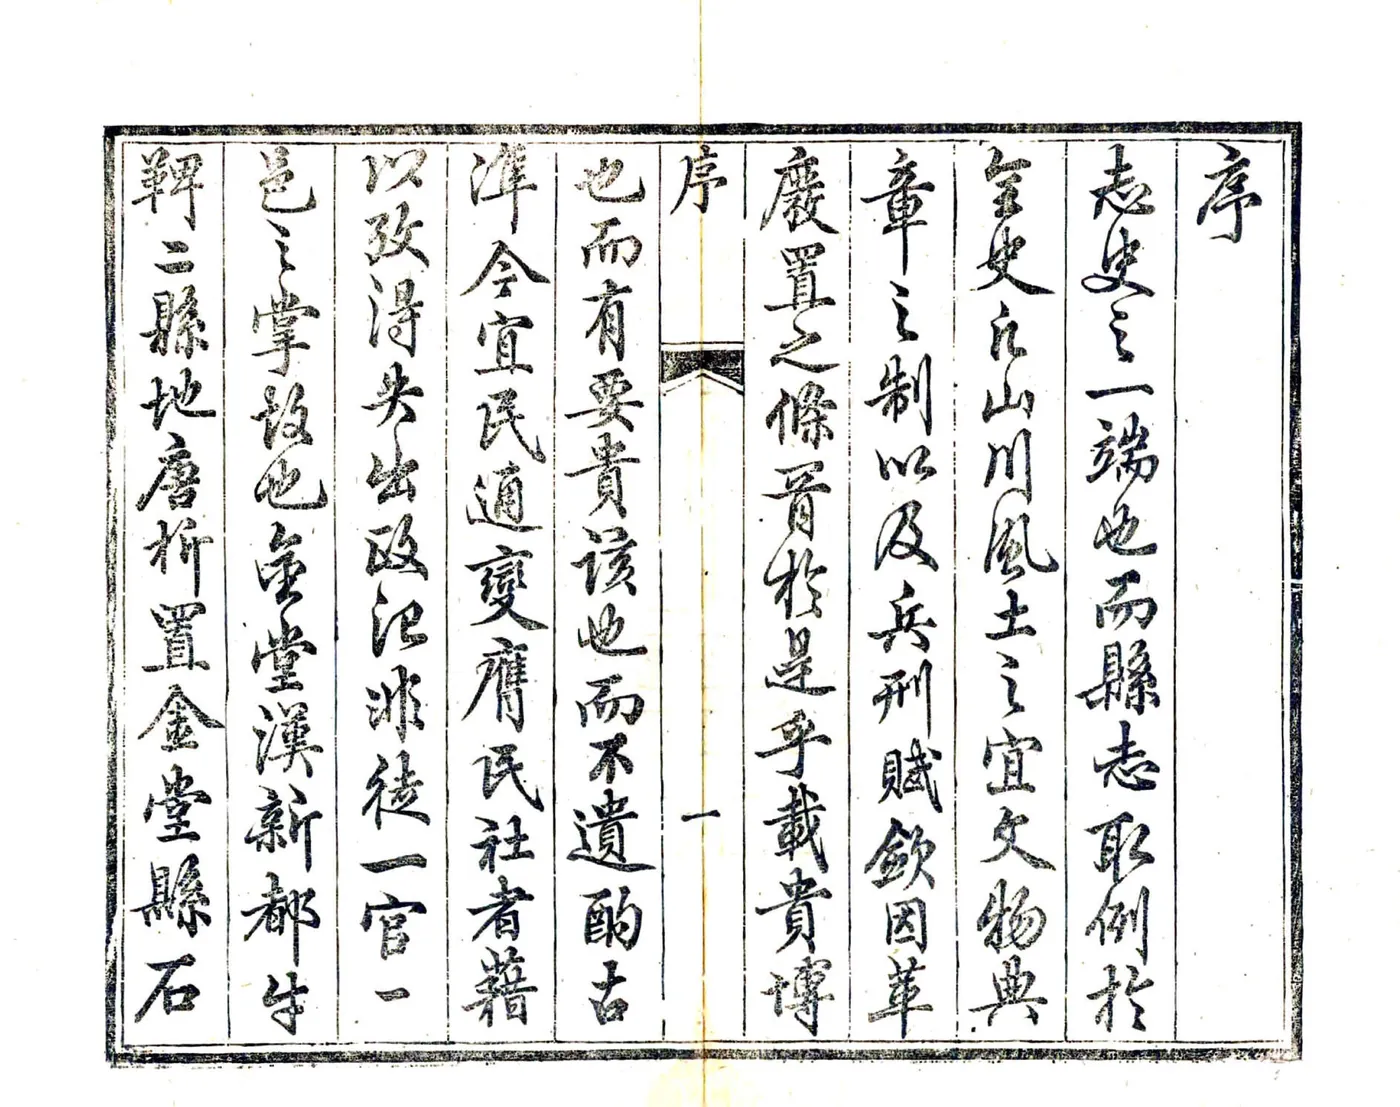 序
志史之一端也而縣志取例於
全史凡山川風土之宜文物典
章之制以及兵刑賦斂因革
廢置之條胥於是乎載貴博
序
一
也而有要貴該也而不遺酌古
準今宜民通變膺民社者藉
以攷得失出政治非徒一官一
邑之掌故也金堂漢新都牛
鞞二縣地唐析置金堂縣石